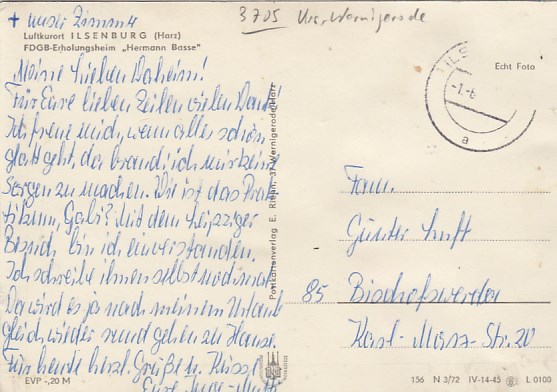 + unser Zimmer
3705 Kr. Wernigerode
Luftkurort ILSENBURG (Harz)
FDGB-Erholungsheim „Hermann Basse"
Meine lieben Daheim!
Für Eure lieben Zeilen vielen Dank!
Ich freue mich, wenn alles schön
glatt geht, da brauch' ich mir keine
Sorgen zu machen. Wie ist das Prak-
tikum, Gabi? Mit dem Leipziger
Besuch bin ich einverstanden.
Ich schreibe ihnen selbst nochmal
Da wird es ja nach meinem Urlaub
gleich wieder rund gehen zu Hause.
Für heute herzl. Grüße u. Küsse
Eure
EVP -,20 M
Postkartenverlag E. Riehn, 37 Wernigerode/Harz
Echt Foto
ILS
-1.-6
a
Fam.
Günter Luft
85 Bischofswerda
Karl-Marx-Str. 20
156 N 3/72 IV-14-45 L 0100